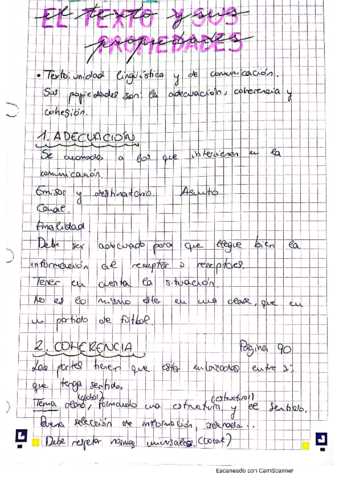 EL TEXTO Y SUS
PROPIEDADES
el texto y sus
propiedades
• Texto: unidad lingüística y de comunicación.
Sus propiedades son: la adecuación, coherencia y
cohesión.
1. ADECUACIÓN
Se acomoda a los que intervienen en la
comunicación.
Emisor y destinatario. Asunto
Canal.
Finalidad
Debe ser adecuado para que llegue bien la
información al receptor o receptores.
Tener en cuenta la situación.
No es lo mismo estar en una clase, que en
un partido de fútbol.
2. COHERENCIA Página 90
Las partes tienen que estar enlazadas entre sí
que tenga sentido.
(global) (estructural)
Tema claro, formando una estructura y el sentido.
Buena selección de información, ordenada...
Debe respetar normas universales. (local)
Escaneado con CamScanner